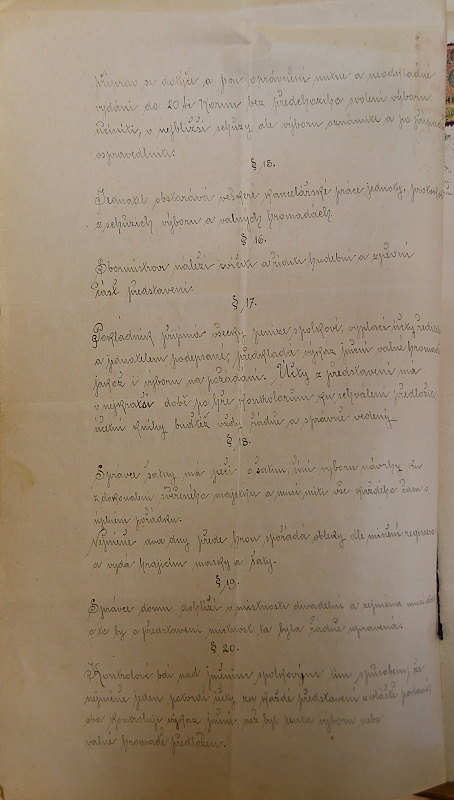 příprav se dotýče a jsou oprávněni nutné a neodkladné
vydání do 20 kr korun bez předchozího svolení výboru
učiniti, v nejbližší schůzy ale výboru oznámiti a po případě
ospravedlniti.
§ 15.
Jednatel obstarává veškeré kancelářské práce jednoty, protokol
o schůzích výboru a valných hromadách.
§ 16.
Sbormistrovi náleží cvičiti a říditi hudební a zpěvní
část představení.
§ 17.
Pokladník přijímá všecky peníze spolkové, vyplácí účty
a jednatelem podepsané, předkládá výkaz jmění valné hromadě
jakož i výboru na požádání. Účty z představení má
v nejkratší době po hře kontrolorům ku schválení předložiti,
účetní knihy buďtež vždy řádně a správně vedeny.
§ 18.
Správce šatny má péči o šatnu, činí výboru návrhy ku
zdokonalení svěřeného majetku a musí míti vše každého času v
úplném pořádku.
Nejméně dva dny přede hrou spořádá obleky dle mínění regissera
a vydá hrajícím masky a šaty.
§ 19.
Správce domu dohlíží v místnosti divadelní a zejména musí
o to by o představení místnost ta byla řádně upravena.
§ 20.
Kontrolové bdí nad jměním spolkovým tím způsobem, že
nejméně jeden potvrdí účty za každé představení zvláště podané,
oba kontrolují výkaz jmění, než byl tento výboru nebo
valné hromadě předložen.